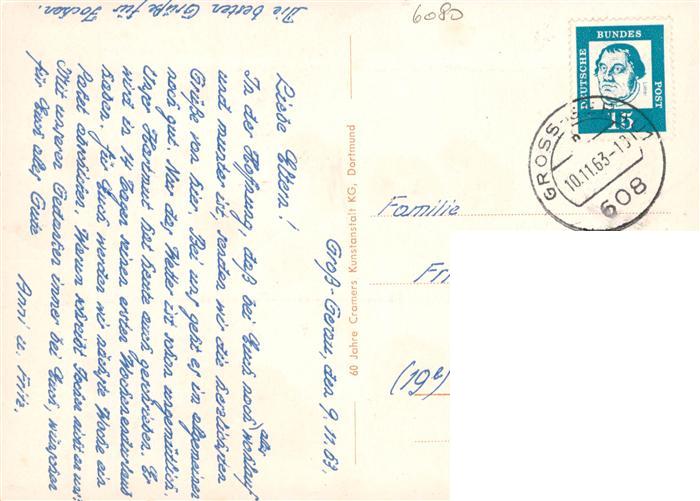 6080
DEUTSCHE
BUNDES
POST
Luther
15
GROSS-GERAU 1
10.11.63-1
608
Familie
Fri
(19b)
60 Jahre Cramers Kunstanstalt KG, Dortmund
Groß-Gerau, den 9.11.63.
Liebe Eltern!
In der Hoffnung, daß bei Euch noch alles wohlauf
und munter ist, senden wir die herzlichsten
Grüße von hier. Bei uns geht es im allgemeinen
noch gut. Nur das Wetter ist schon ungemütlich.
Unser Hartmut hat heute auch geschrieben. Er
wird in 14 Tagen seinen ersten Wochenendurlaub
haben. Für Euch werden wir nächste Woche ein
Paket abschicken. Warum schreibt Jochen nicht an uns?
Mit unseren Gedanken immer bei Euch, wünschen
für Euch alles Gute
Anni u. Fritz.
Die besten Grüße für Jochen.